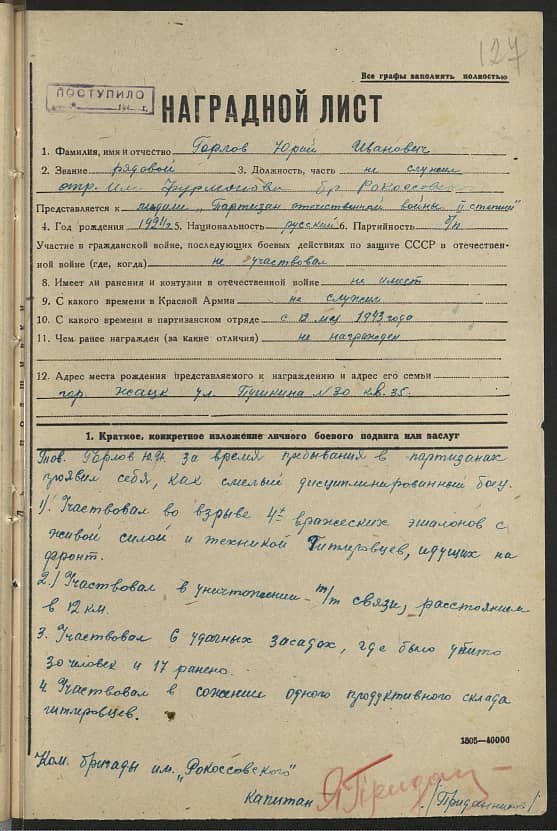 127
Все графы заполнять полностью
ПОСТУПИЛО
194 г.
НАГРАДНОЙ ЛИСТ
1. Фамилия, имя и отчество Горлов Юрий Иванович
2. Звание рядовой 3. Должность, часть не служил
отр. им Фурманова бр Рокоссовского
Представляется к медали „Партизан отечественной войны II степени"
4. Год рождения 5. Национальность русский 6. Партийность б/п
Участие в гражданской войне, последующих боевых действиях по защите СССР в отечествен-
ной войне (где, когда) не участвовал
8. Имеет ли ранения и контузии в отечественной войне не имеет
9. С какого времени в Красной Армии не служил
10. С какого времени в партизанском отряде с 12 мая 1943 года
11. Чем ранее награжден (за какие отличия) не награжден
12. Адрес места рождения представляемого к награждению и адрес его семьи
гор. ул. Пушкина №30 кв. 35.
1. Краткое, конкретное изложение личного боевого подвига или заслуг
Тов. Горлов за время пребывания в партизанах
проявил себя, как смелый дисциплинированный боец.
1). Участвовал во взрыве 4х вражеских эшалонов с
живой силой и техникой Гитлеровцев, идущих на
фронт.
2.) Участвовал в уничтожении т/т связи, расстоянием
в 12 км.
3. Участвовал 6 удачных засадах, где было убито
30 человек и 17 ранено.
4. Участвовал в сожении одного продуктивного склада
гитлеровцев.
1505—40000
Ком. бригады им. „Рокоссовского"
капитан